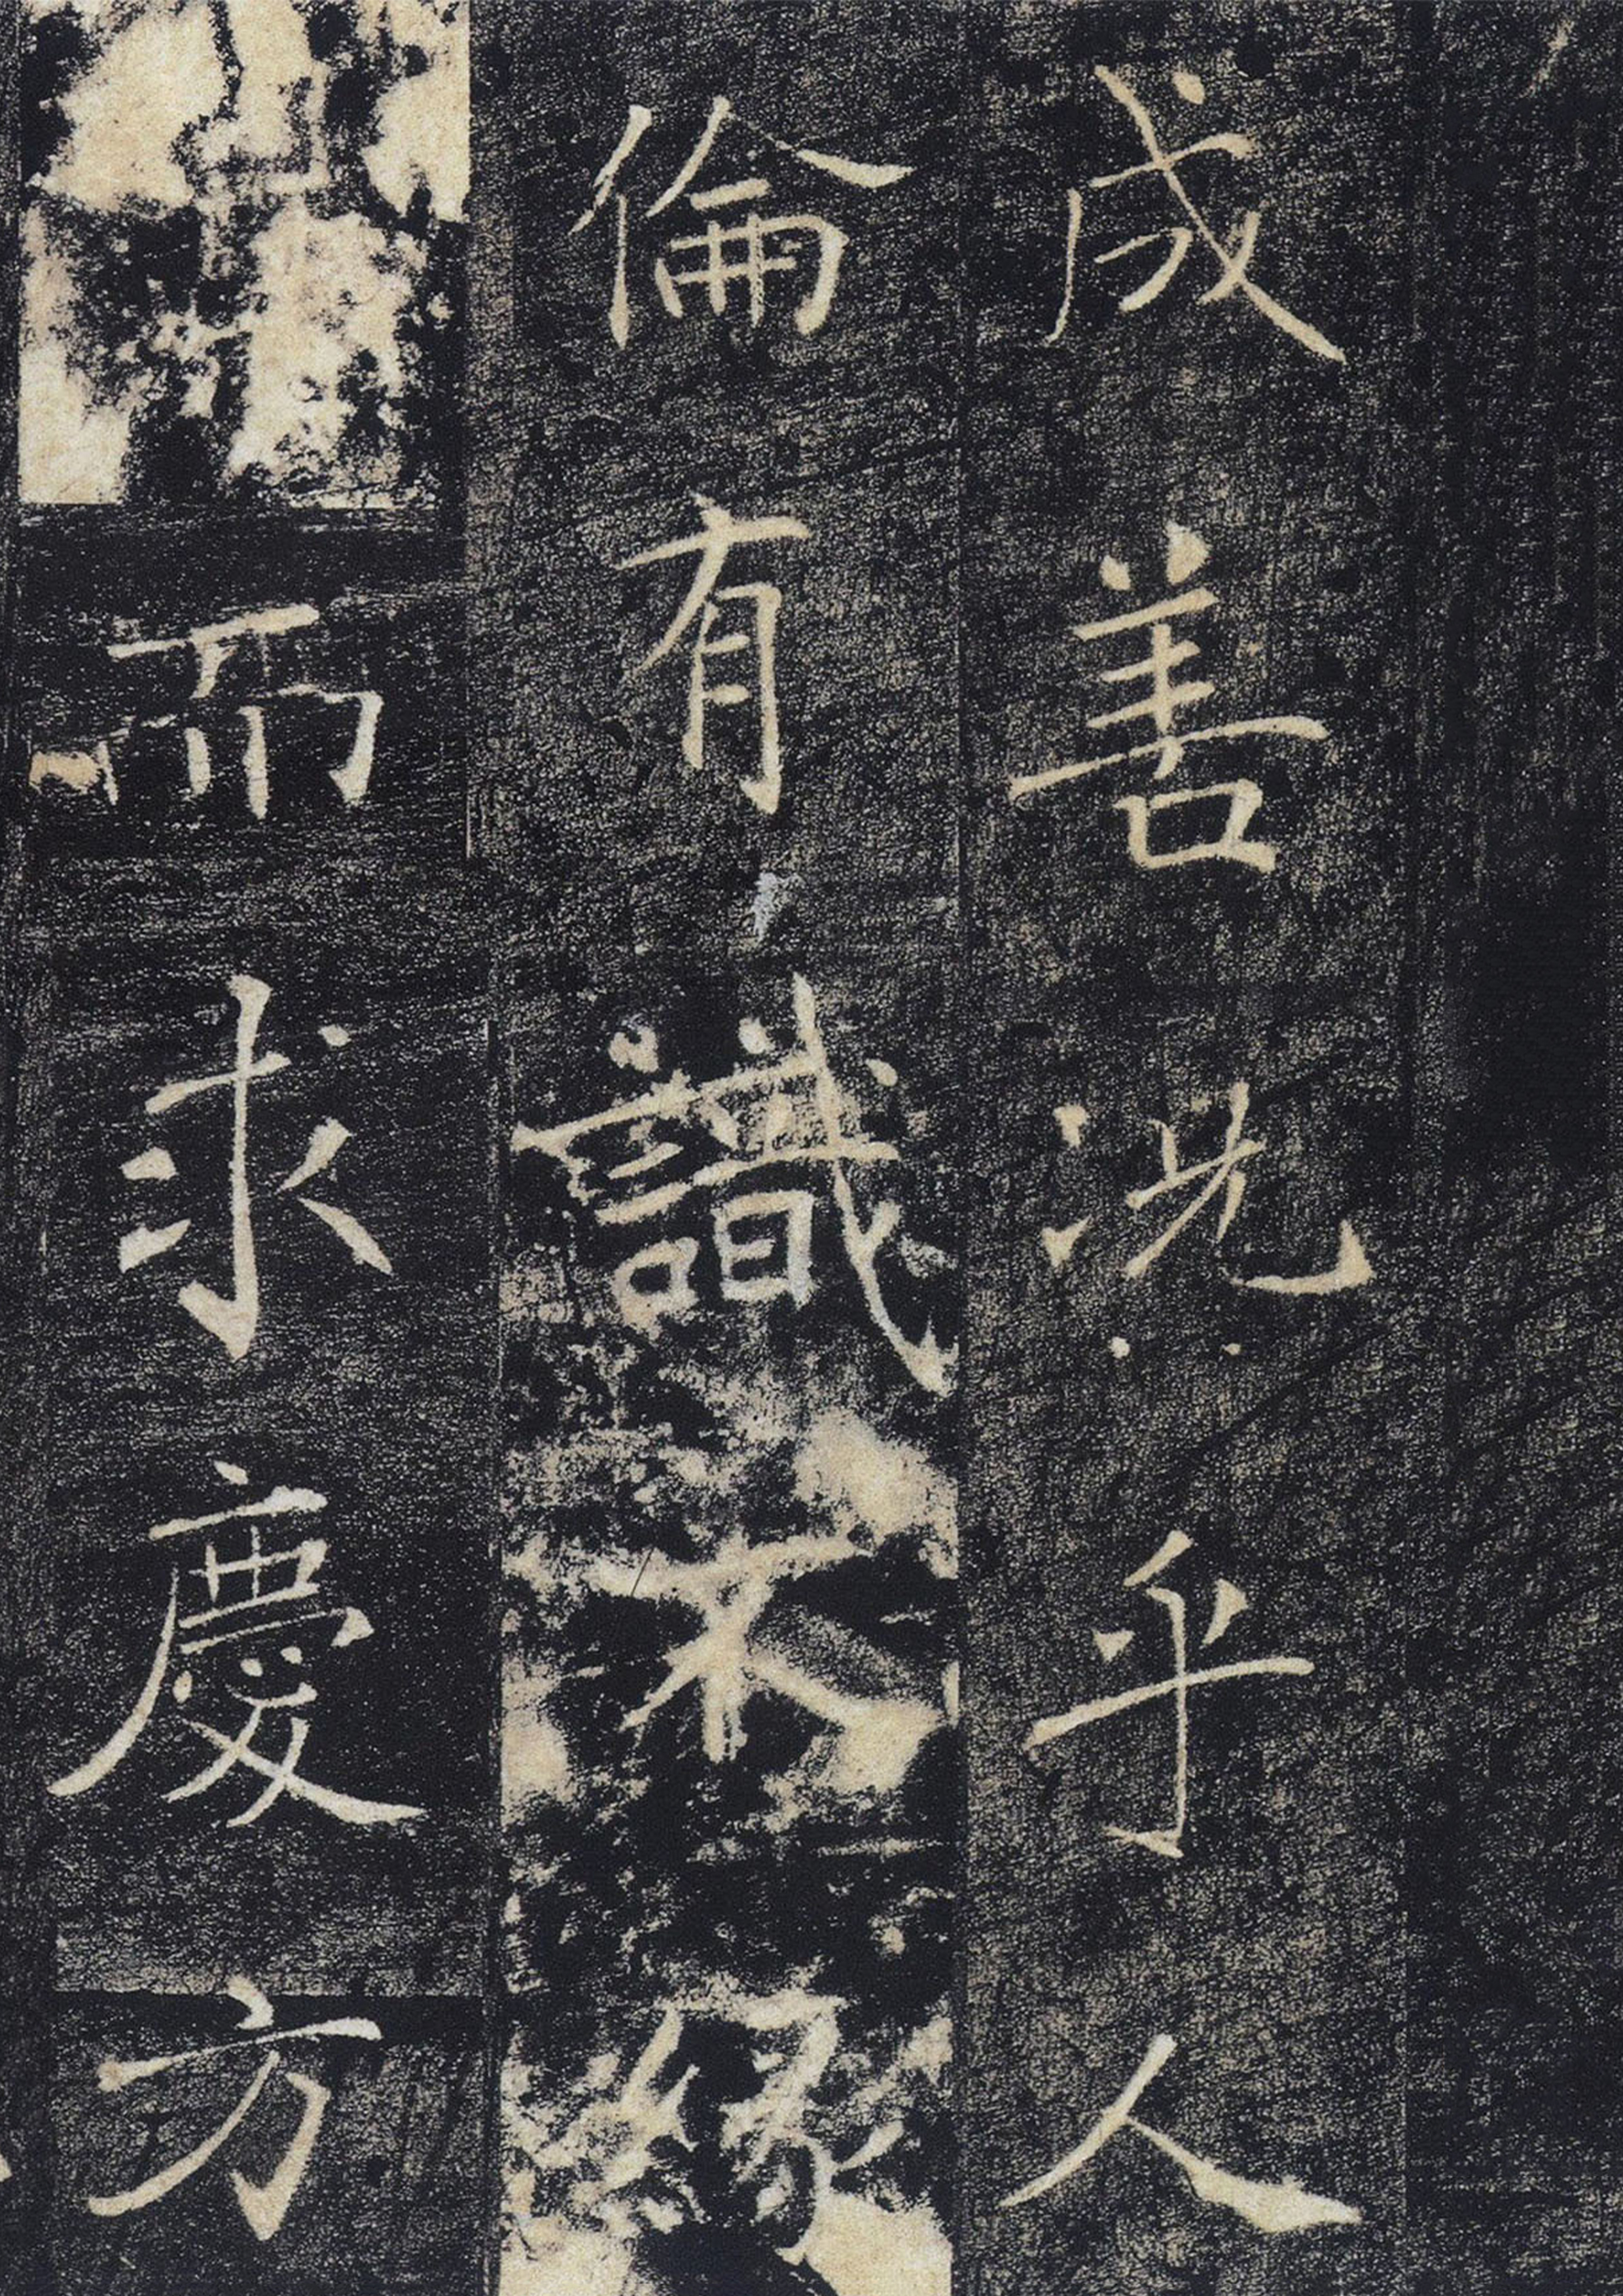 成善况乎人
倫有識不緣
而求慶方